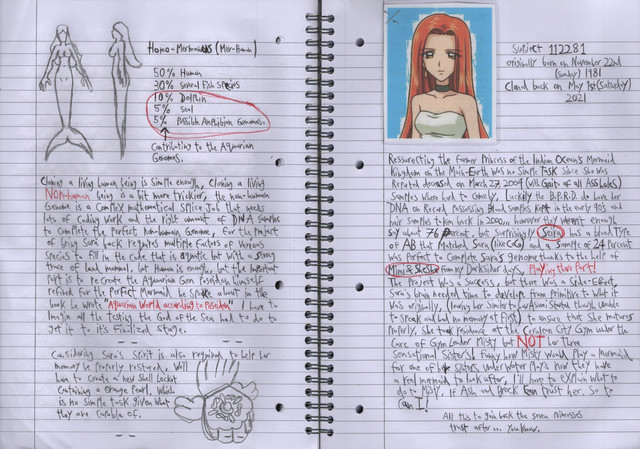 Homo-Mermanius (Mer-Human)
50% Human
30% several Fish Species
10% Dolphin
5% Seal
5% Possible Amphibian Genomes.
Contributing to the Aquarian
Genomes.
Cloning a living human being is simple enough, Cloning a living
Non-human being is a bit more trickier, the non-human
Genome is a Complex mathematical splice Job that needs
lots of Coding work and the right amount of DNA Samples
to Complete the perfect non-human Genome, for the project
of bring Sara back requires multiple factors of various
species to fill in the code that is aquatic but with a strong
trace of land mammal. but Human is enough, but the important
part is to recreate the Aquarian Gem Poseidon himself
refined for the Perfect Mermaid. he spoke about in the
book he wrote "Aquarian World according to Poseidon" I have to
Imagin all the testing the God of the Sea had to do to
get it to it's finalized stage.
Considering Sara's Spirit is also required to help her
memory be properly restored, Will
have to create a new Shell Locket
Containing a Orange Pearl, Which
is no simple task given what
they are capable of.
Subject 112281
originally born on November 22nd
(Sunday) 1181
Cloned back on May 1st (Saturday)
2021
Ressurecting the former Princess of the Indian Ocean's Mermaid
Kingdom on the Main-Earth was no simple task since she was
Reported deceased on March 27, 2004 (Will Gaito of all Assholes)
Samples where hard to come by, Luckily the B.P.R.D. do have her
DNA on Record possessing blood samples kept in the early 90s and
hair samples taken back in 2000, however they weren't enough
say about 76 Percent, but surprisingly Seira has a blood Type
of AB that Matched Sara and a sample of 24 Percent
was Perfect to Complete Sara's genome thanks to the help of
Mimi & Shesha from my Darksidar days, Playing their Part!
The Project was a Success, but there was a Side-Effect,
Sara's brain needed time to develop from Primitive to what it
was originally, (having her similar to cavewoman status though unable
to speak and had no memory at first) to ensure that she matures
Properly, she took residence at the Cerulean City Gym under the
Care of Gym Leader Misty but NOT her three
Sensational Sisters! Funny how Misty would Play a Mermaid
for one of her sisters underwater Plays now they have
a real mermaid to look after, I'll hope to explain what to
do to Misty, if Ash and Brock can trust her, So to
Can I!
All this to gain back the seven princesses
trust after... You Know.